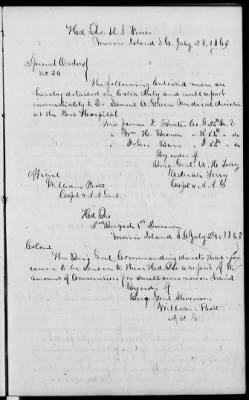 Hed Qrs. U. S. Forces
Morris Island S.C. July 28, 1863
Special Orders
No. 20
The following Enlisted men are
hereby detailed on Extra duty and will report
immediately to Dr. Samuel A. Green Medical director
at the Post Hospital
Wm. H. Brown
John
By order of
Brig Genl A. H. Terry
Adrian Terry
Capt & A. A. G.
Official
William
Capt & A. A. Genl.
Hed Qrs
Brigade 1st Division
Morris Island S.C. July 29, 1863
Colonel
The Brig Genl Commanding directs that you
cause to be sent in to these Hed Qrs a report of the
amount of Ammunition for Small arms now on hand
By order of
Brig Genl Stevenson
William